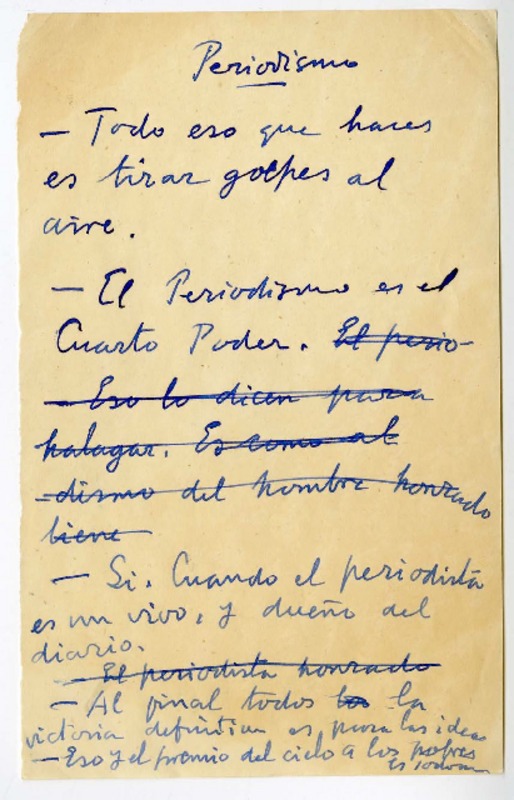 Periodismo
— Todo eso que haces
es tirar golpes al
aire.
— El Periodismo es el
Cuarto Poder. El perio-
— Eso lo dicen para
halagar. Es como al
-dismo del hombre honrado
tiene
— Si. Cuando el periodista
es un vivo, y dueño del
diario.
— El periodista honrado
— Al final todos los la
victoria definitiva es para las ideas
— Eso y el premio del cielo a los pobres
es